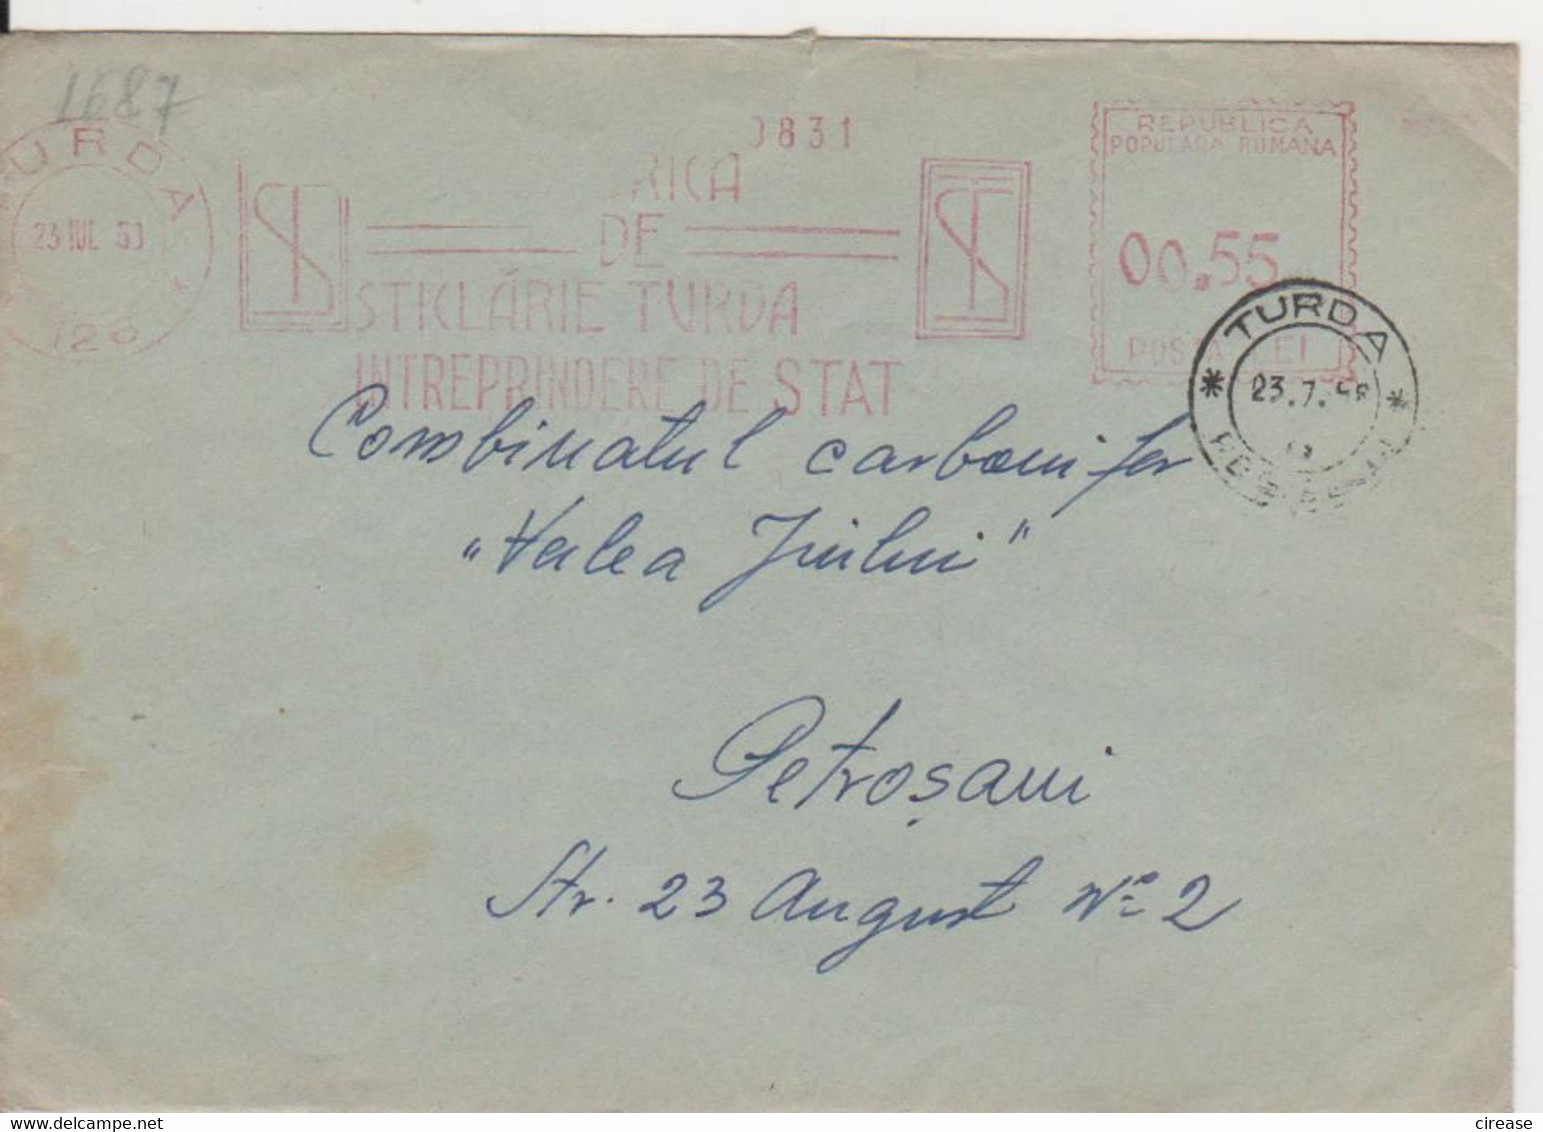 1687
URDA
23 IUL 5
126
0831
RICA
DE
STICLĂRIE TURDA
INTREPRINDERE DE STAT
REPUBLICA
POPULARA ROMANA
00.55
POSTA LEI
TURDA
23.7.58
Combinatul carbonifer
"Valea Jiului"
Petroşani
Str. 23 August No 2
crease